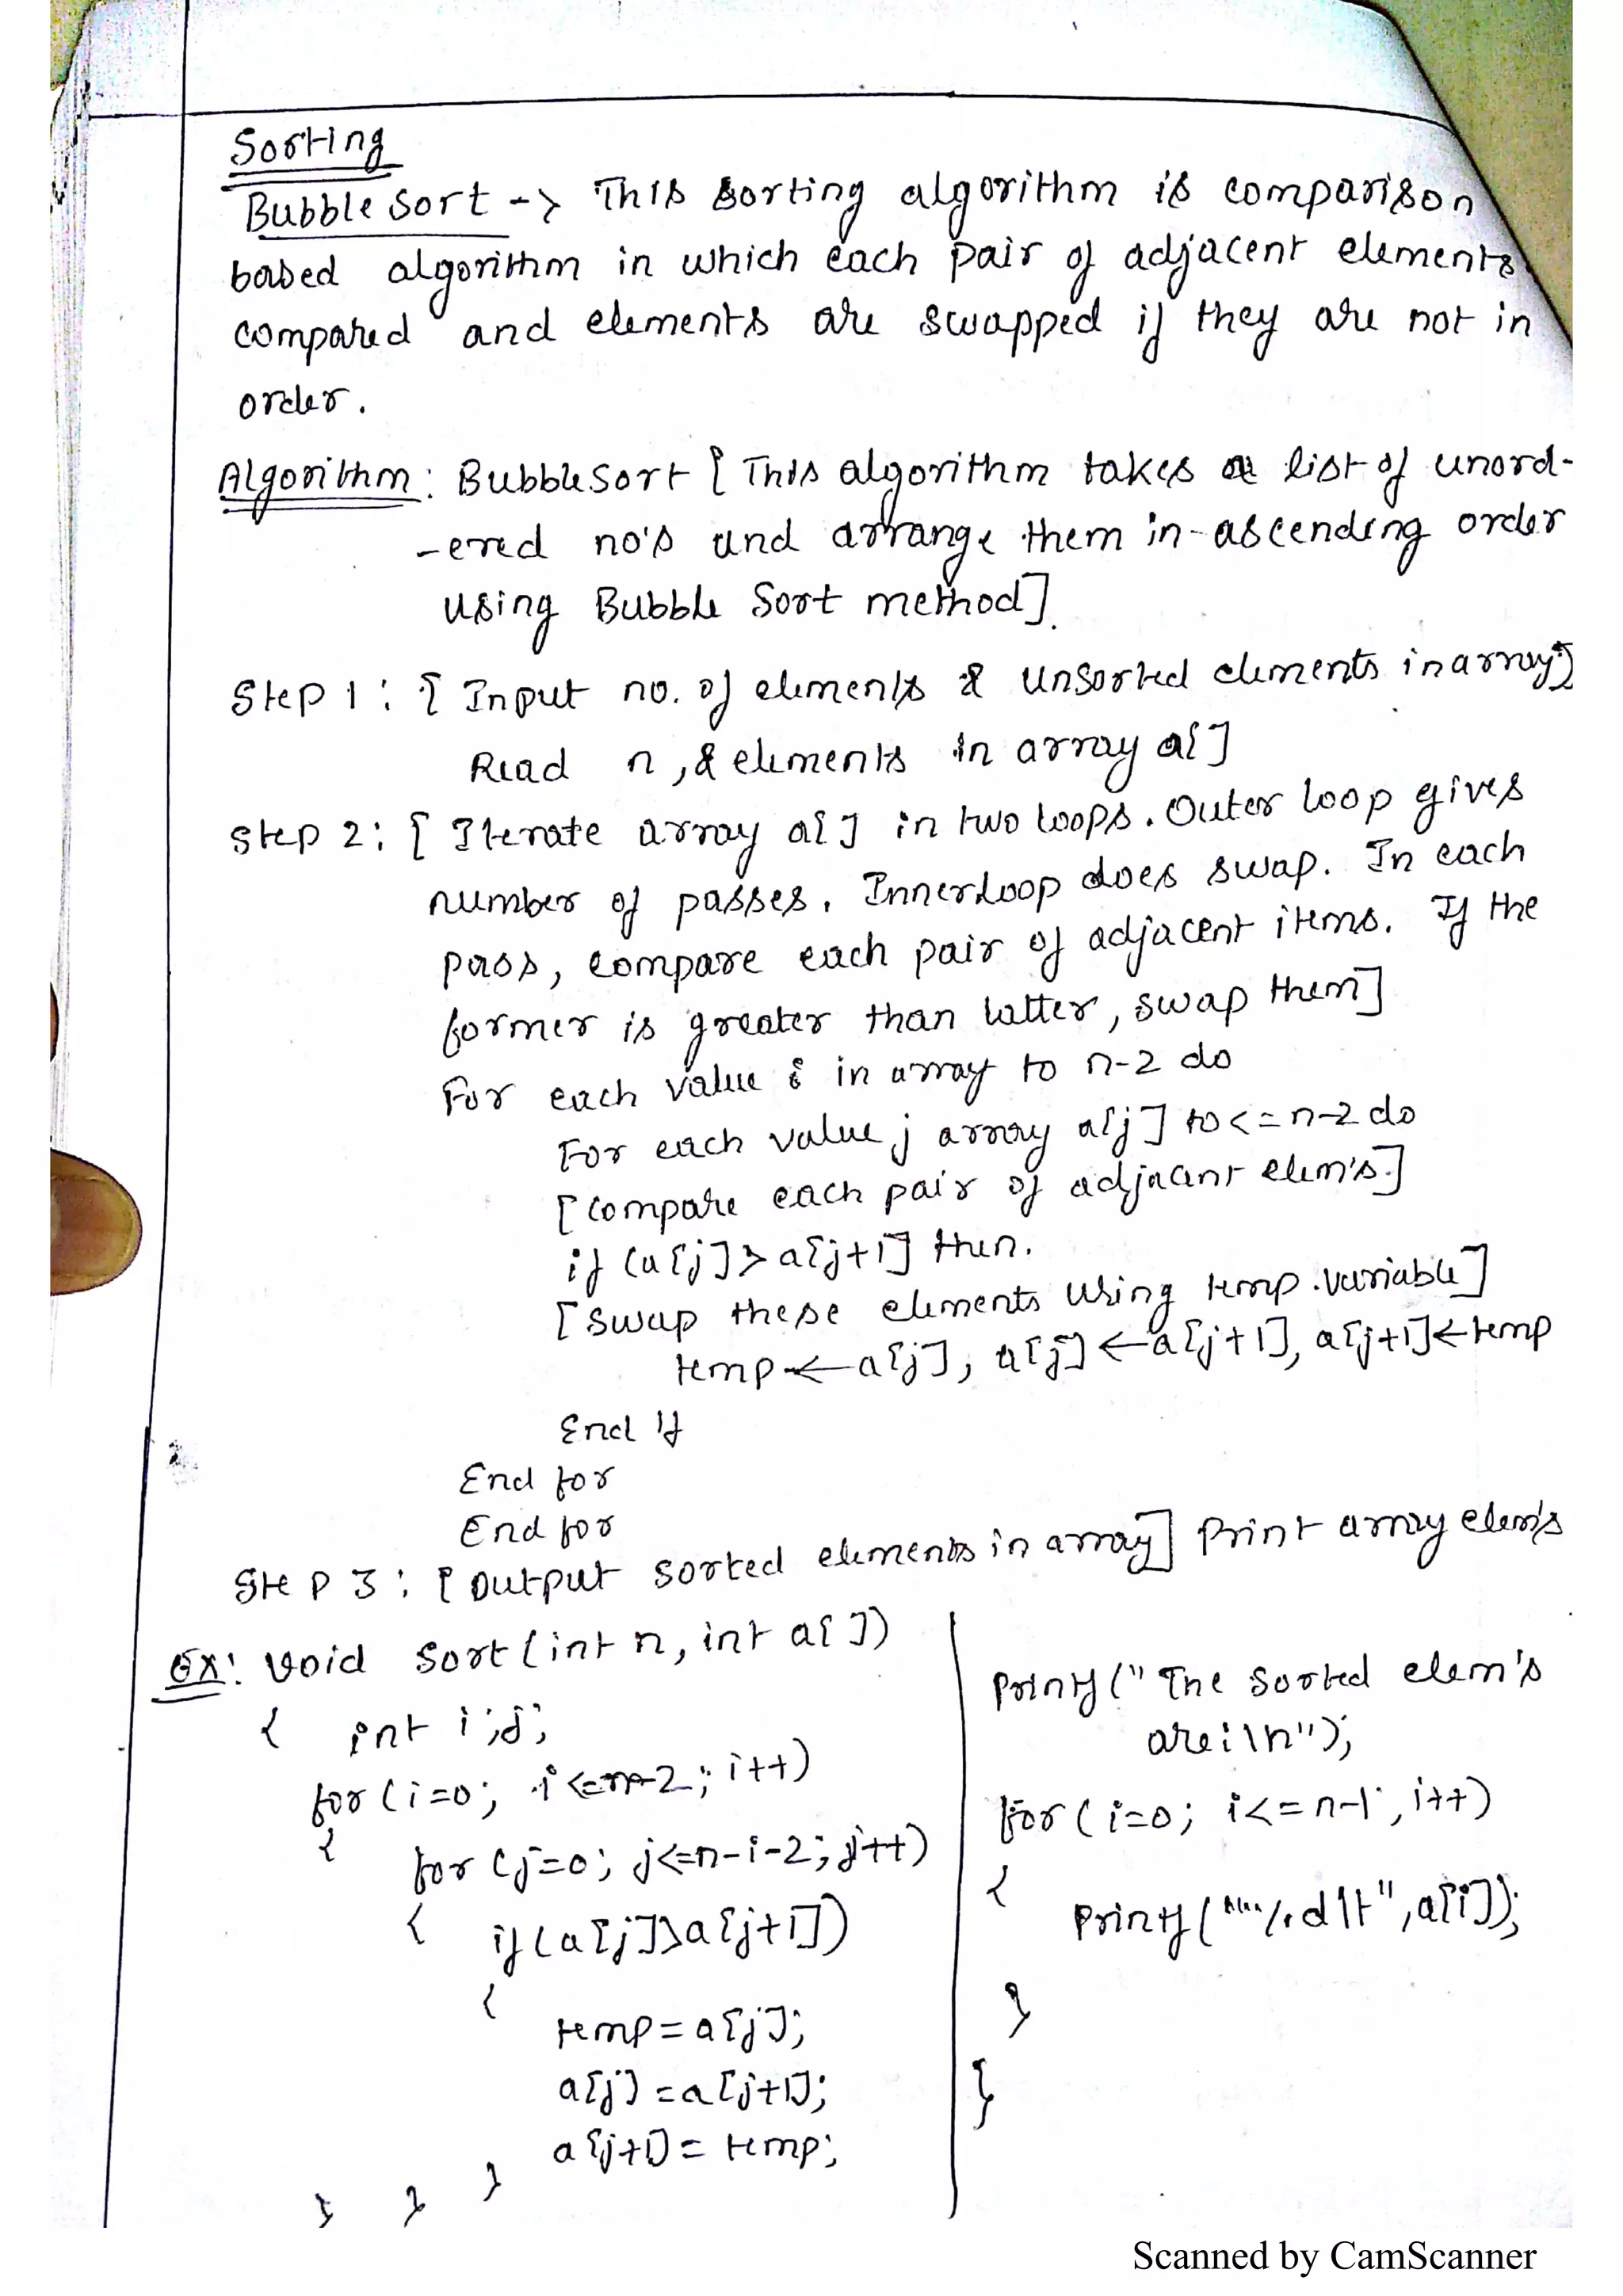 Sorting
Bubble Sort -> This sorting algorithm is comparison
based algorithm in which each pair of adjacent elements
compared and elements are swapped if they are not in
order.
Algorithm: BubbleSort [ This algorithm takes a list of unord-
-ered no's and arrange them in-ascending order
using Bubble Sort method].
Step 1 : [ Input no. of elements & Unsorted elements in array]
Read n ,& elements in array a[]
Step 2: [ Iterate array a[] in two loops. Outer loop gives
number of passes. InnerLoop does swap. In each
pass, compare each pair of adjacent items. If the
former is greater than latter, swap them]
For each value i in array to n-2 do
For each value j array a[j] to <= n-2 do
[ Compare each pair of adjacent elem's]
if (a[j] > a[j+1] then.
[ Swap these elements using temp.variable]
temp <- a[j], a[j] <- a[j+1], a[j+1] <- temp
End If
End for
End for
Step 3 : [ Output sorted elements in array] Print array elem's
Ex: Void Sort(int n, int a[])
{ int i,j;
for (i=0; i<=n-2; i++)
{ for (j=0; j<=n-i-2; j++)
{ if(a[j]>a[j+1])
{
temp = a[j];
a[j] = a[j+1];
a[j+1] = temp;
} } }
Printf(" The Sorted elem's
are:\n");
for( i=0; i<=n-1; i++)
{
Printf("%d\t",a[i]);
}
}
Scanned by CamScanner